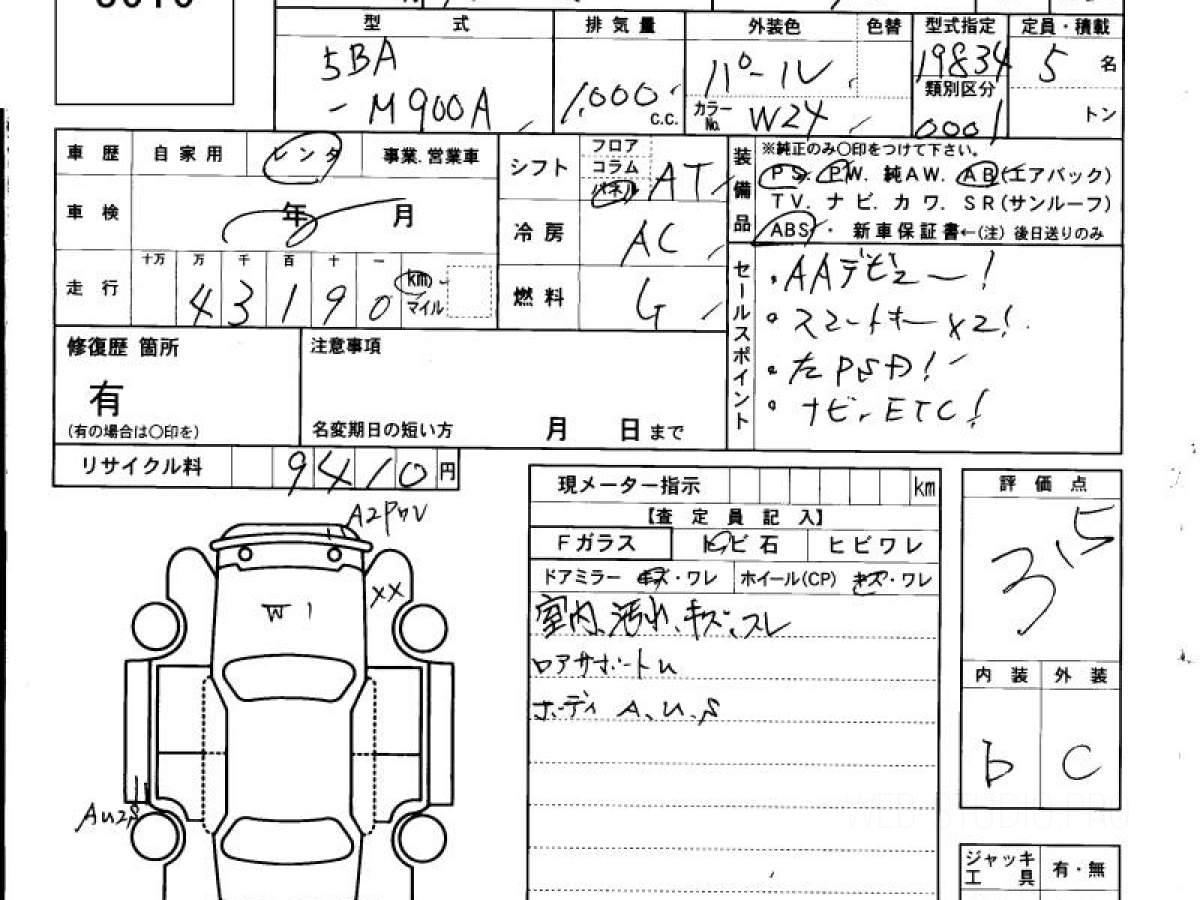 型 式
排 気 量
外装色
色替
型式指定
定員・積載
5BA
-M900A
1,000
C.C.
パール
カラーNo.
W24
19834
類別区分
0001
5
名
トン
車 歴
自 家 用
レンタ
事業.営業車
車 検
年
月
走 行
十万 万 千 百 十 一
4 3 1 9 0
km
マイル
シフト
フロア
コラム
パネル
AT
冷 房
AC
燃 料
G
装備品
※純正のみ〇印をつけて下さい。
PS. PW. 純AW. AB(エアバック)
TV. ナビ. カワ. SR(サンルーフ)
ABS・ 新車保証書←(注) 後日送りのみ
セールスポイント
・AAデビュー!
・スマートキーx2!
・左PSD!
・ナビ、ETC!
修復歴 箇所
有
(有の場合は〇印を)
注意事項
名変期日の短い方
月 日 まで
リサイクル料
9410
円
現メーター指示
km
【査 定 員 記 入】
Fガラス
トビ石
ヒビワレ
ドアミラー キズ・ワレ
ホイール(CP) キズ・ワレ
室内、汚れ、キズ、スレ
ロアサポートU
ボーディ A、U、S
評 価 点
3.5
内 装
外 装
b
C
ジャッキ
工 具
有・無
A2Pワレ
W1
XX
AU2S
WEB-STUDIO.PRO